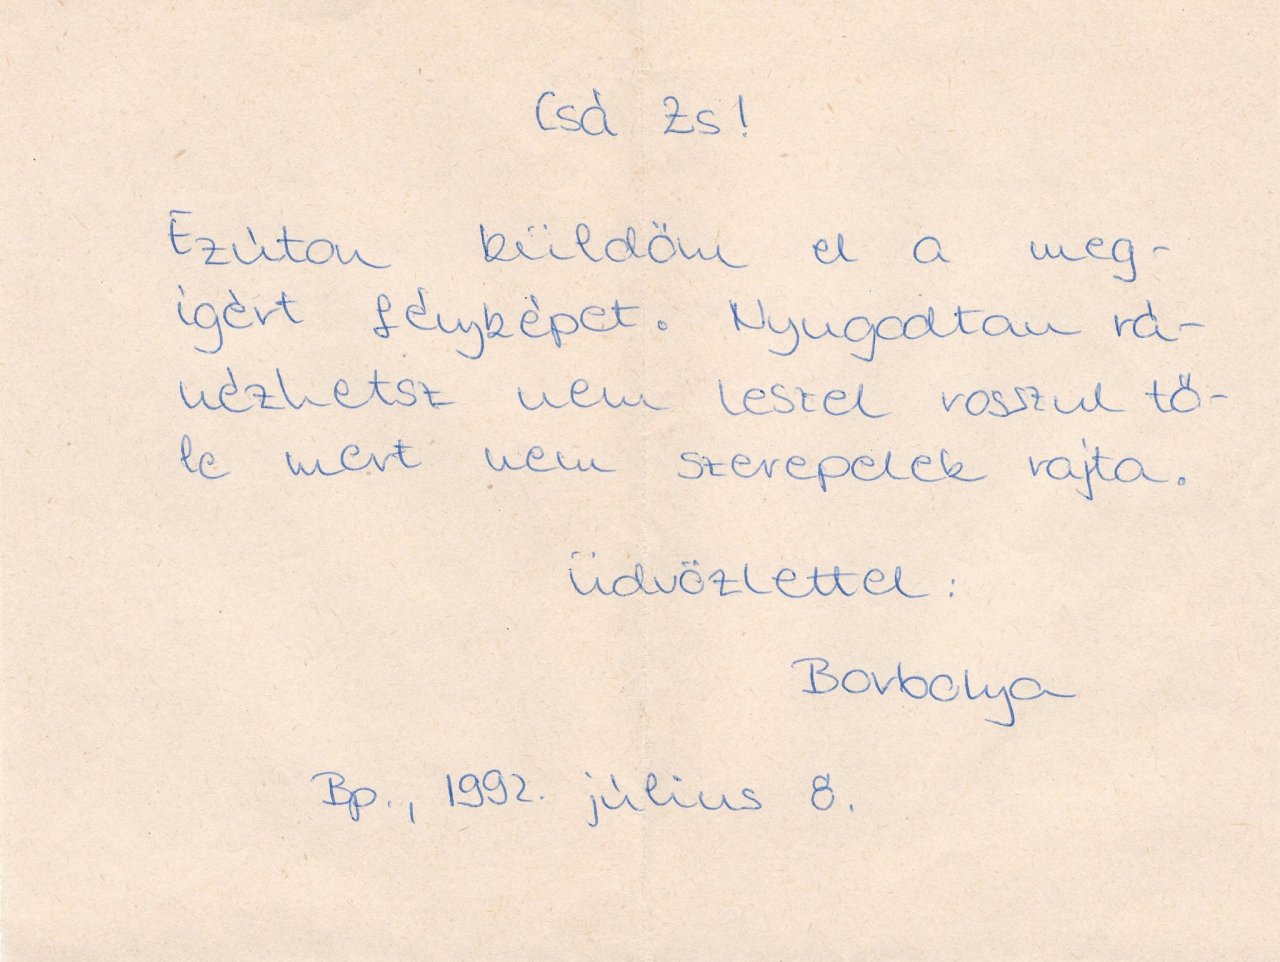 Csá Zs!
Ezúton küldöm el a meg-
ígért fényképet. Nyugodtan rá-
nézhetsz nem leszel rosszul tő-
le mert nem szerepelek rajta.
Üdvözlettel:
Borbolya
Bp., 1992. július 8.